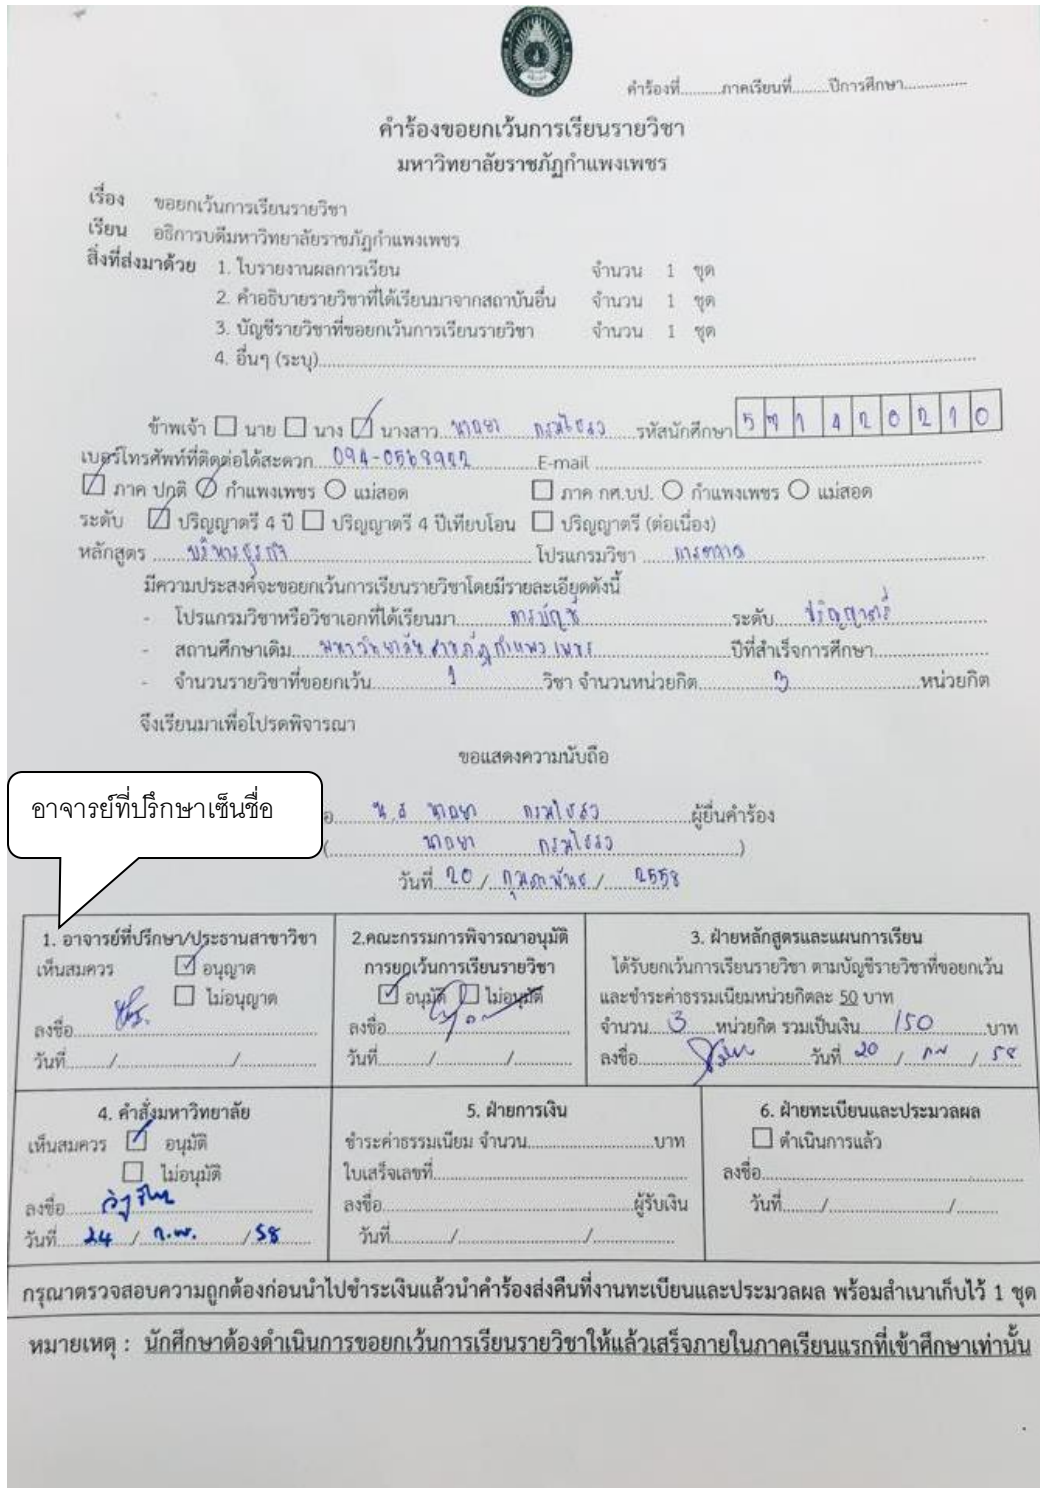 คำร้องที่..........ภาคเรียนที่.........ปีการศึกษา................
คำร้องขอยกเว้นการเรียนรายวิชา
มหาวิทยาลัยราชภัฏกำแพงเพชร
เรื่อง ขอยกเว้นการเรียนรายวิชา
เรียน อธิการบดีมหาวิทยาลัยราชภัฏกำแพงเพชร
สิ่งที่ส่งมาด้วย 1. ใบรายงานผลการเรียน จำนวน 1 ชุด
2. คำอธิบายรายวิชาที่ได้เรียนมาจากสถาบันอื่น จำนวน 1 ชุด
3. บัญชีรายวิชาที่ขอยกเว้นการเรียนรายวิชา จำนวน 1 ชุด
4. อื่นๆ (ระบุ)................
ข้าพเจ้า นาย นาง นางสาว รหัสนักศึกษา 571420210
เบอร์โทรศัพท์ที่ติดต่อได้สะดวก E-mail
ภาค ปกติ กำแพงเพชร แม่สอด ภาค กศ.บป. กำแพงเพชร แม่สอด
ระดับ ปริญญาตรี 4 ปี ปริญญาตรี 4 ปีเทียบโอน ปริญญาตรี (ต่อเนื่อง)
หลักสูตร บริหารธุรกิจ โปรแกรมวิชา การตลาด
มีความประสงค์จะขอยกเว้นการเรียนรายวิชาโดยมีรายละเอียดดังนี้
- โปรแกรมวิชาหรือวิชาเอกที่ได้เรียนมา การบัญชี ระดับ ปริญญาตรี
- สถานศึกษาเดิม มหาวิทยาลัยราชภัฏกำแพงเพชร ปีที่สำเร็จการศึกษา................
- จำนวนรายวิชาที่ขอยกเว้น 1 วิชา จำนวนหน่วยกิต 3 หน่วยกิต
จึงเรียนมาเพื่อโปรดพิจารณา
ขอแสดงความนับถือ
อาจารย์ที่ปรึกษาเซ็นชื่อ
น.ส ผู้ยื่นคำร้อง
วันที่ 20 / กุมภาพันธ์ / 2558
1. อาจารย์ที่ปรึกษา/ประธานสาขาวิชา
เห็นสมควร อนุญาต
ไม่อนุญาต
ลงชื่อ
วันที่........../................/................
2.คณะกรรมการพิจารณาอนุมัติ
การยกเว้นการเรียนรายวิชา
อนุมัติ ไม่อนุมัติ
ลงชื่อ
วันที่........../............/............
3. ฝ่ายหลักสูตรและแผนการเรียน
ได้รับยกเว้นการเรียนรายวิชา ตามบัญชีรายวิชาที่ขอยกเว้น
และชำระค่าธรรมเนียมหน่วยกิตละ 50 บาท
จำนวน 3 หน่วยกิต รวมเป็นเงิน 150 บาท
ลงชื่อ วันที่ 20 / กพ / 58
4. คำสั่งมหาวิทยาลัย
เห็นสมควร อนุมัติ
ไม่อนุมัติ
ลงชื่อ
วันที่ 24 / ก.พ. / 58
5. ฝ่ายการเงิน
ชำระค่าธรรมเนียม จำนวน................บาท
ใบเสร็จเลขที่................
ลงชื่อ................ผู้รับเงิน
วันที่........../................/................
6. ฝ่ายทะเบียนและประมวลผล
ดำเนินการแล้ว
ลงชื่อ................
วันที่........../................/..........
กรุณาตรวจสอบความถูกต้องก่อนนำไปชำระเงินแล้วนำคำร้องส่งคืนที่งานทะเบียนและประมวลผล พร้อมสำเนาเก็บไว้ 1 ชุด
หมายเหตุ : นักศึกษาต้องดำเนินการขอยกเว้นการเรียนรายวิชาให้แล้วเสร็จภายในภาคเรียนแรกที่เข้าศึกษาเท่านั้น